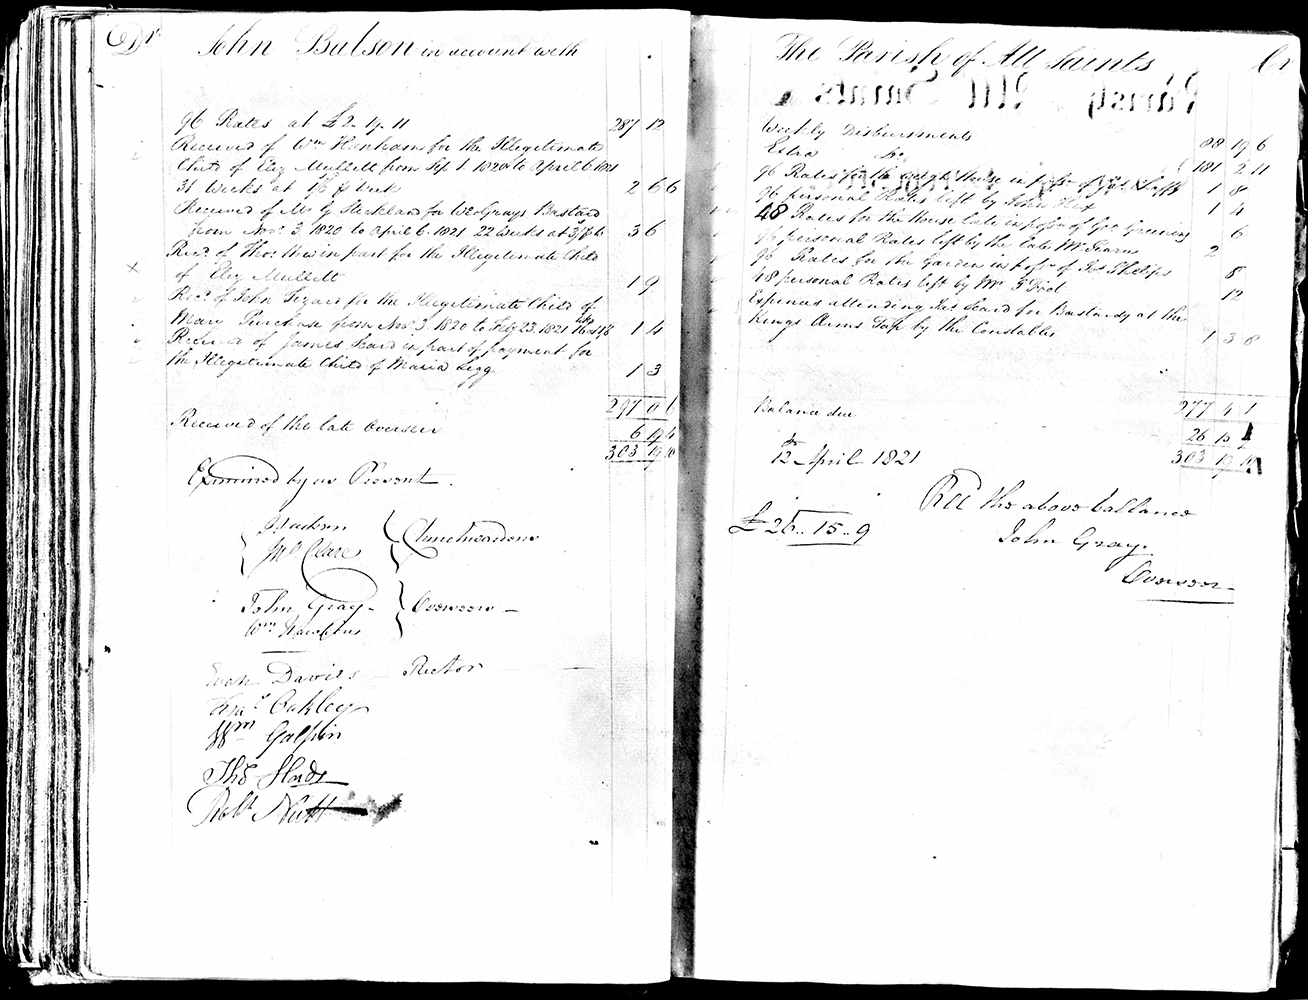 Dr
John Bulson in account with
96 Rates at £2-19-11 287 12
Received of Wm Henhams for the Illegitimate
Child of Eliz Mullett from Sep 1. 1820 to April 6 1821
31 Weeks at 1/6 p Week 2 6 6
Received of Mr G Stickland for Wm Grays Bastard
from Nov. 3 1820 to April 6 1821 22 Weeks at 3/ 3 6
Recd of Thos in part for the Illegitimate Child
of Eliz Mullett 1 9
Recd of John Lizard for the Illegitimate Child of
Mary Purchase from Nov. 3. 1820 to Feby 23. 1821 1 4
Received of James Seard in part of payment for
the Illegitimate Child of Maria Legg 1 3
297 0 6
Received of the late Overseer 6 19 4
303 19 10
Examined by us Present.
Jackson
Jno Clare
Churchwardens
John Gray
Wm Hawkins
Overseers
Evan Davies Rector
Thos Oakley
Wm Galpin
Thos
Robt Nutt
The Parish of All Saints
Cr
Parish All Saints
Weekly Disbursements 88 19 6
Extra Do 181 2 11
96 Rates for the weigh House in poson of 1 8
96 personal Rates left by John 1 4
48 Rates for the House late in poson of Geo Greening 6
96 personal Rates left by the late Mr 2
96 Rates for the Garden in poson of Jas Phelips 8
48 personal Rates left by Mr G 12
Expences attending Jas Seard for Bastardy at the
Kings Arms Tap by the Constables 1 3 8
277 4 1
Balance due 26 15 9
303 19 10
12th April 1821
Recd the above ballance
£26..15..9
John Gray.
Overseer